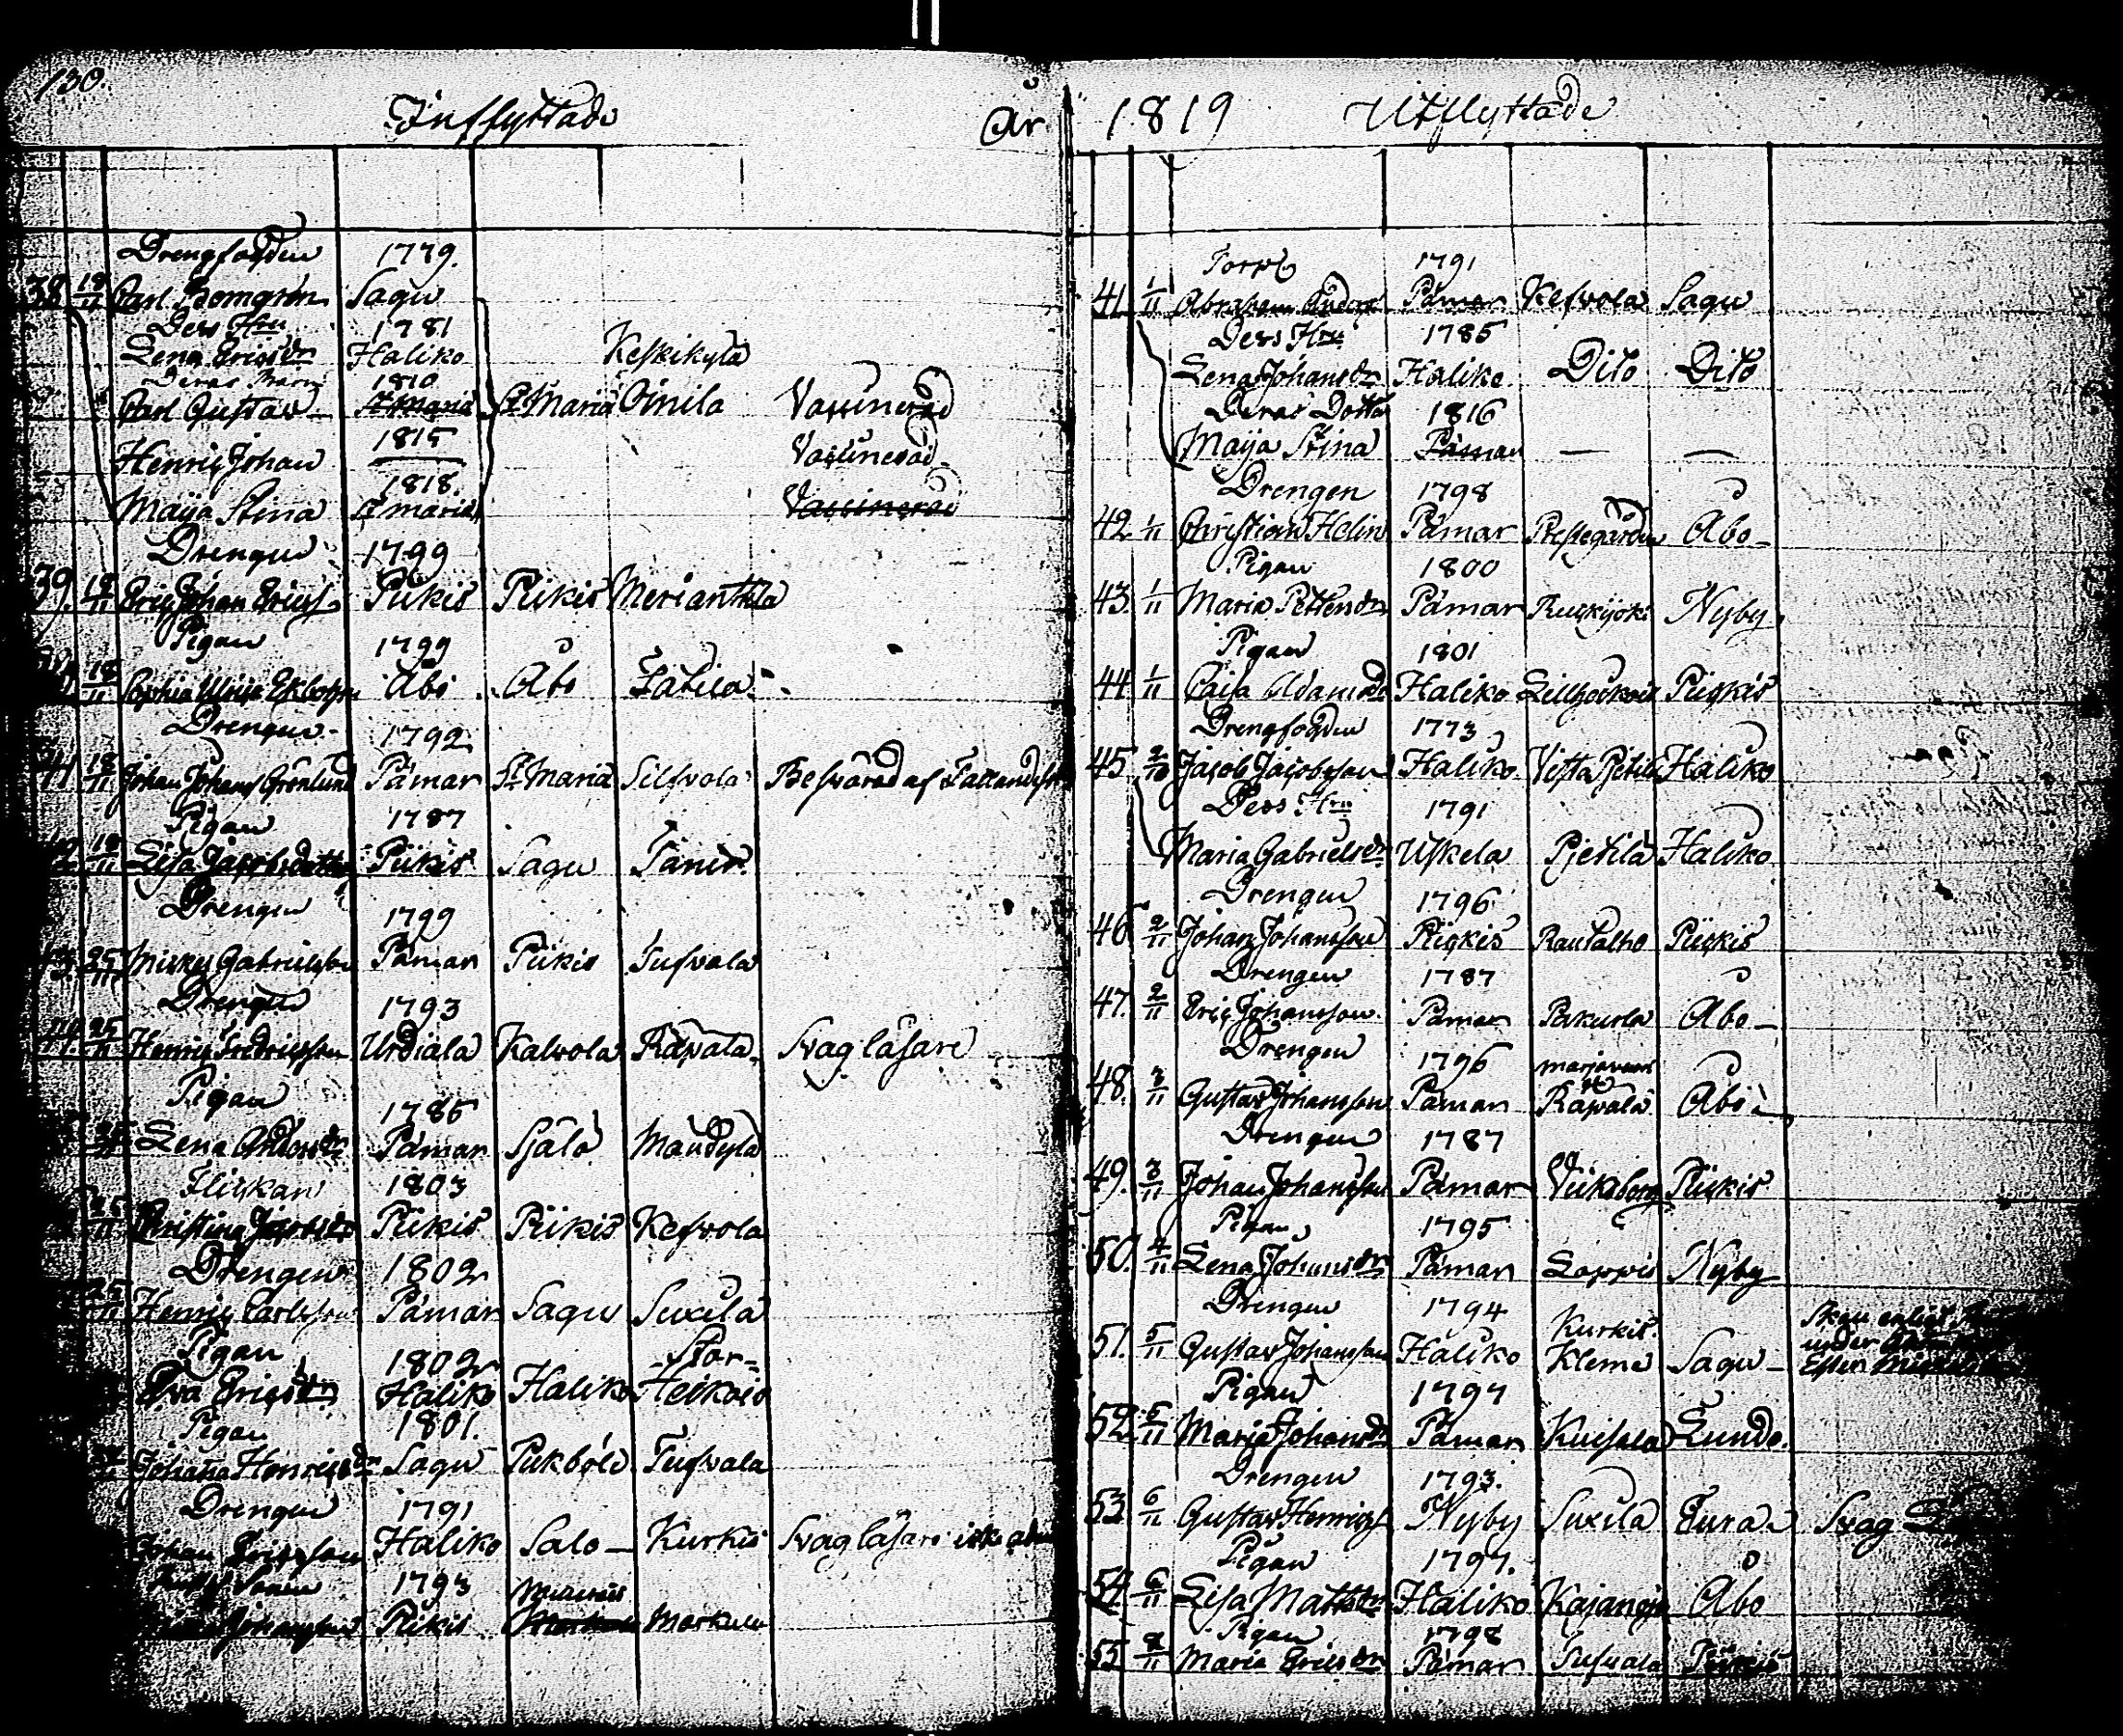 130.
Inflyttade
År 1819 Utflyttade
Drengfogden 1779.
38 18/11 Carl Blomgrén Sagu
Dess Hru 1781
Lena Ericsdr Haliko Keskikylä
Deras Barn 1810
Carl Gustav St Maria St Maria Oinila Vaccinerad
Henric Johan 1815 Vaccinerad
1818.
Maija Stina St Maria Vaccinerad
Drengen 1799
39. 18/11 Eric Johan Erics Piikis Piikis Merianttila
Pigan 1799
18/11 Sophia Ulrica Åbo Åbo
Drengen 1792
41 18/11 Johan Johans Grönlund Påmar St Maria Silfvola Besvärad af
Pigan 1787
18/11 Lisa Jacobsdotter Piikis Sagu
Drengen 1799
25/11 Mickel Gabrielsson Påmar Piikis Tufvala
Drengen 1793
44. 25/11 Henric Fredricsson Urdiala Kalvola Råpala Svag läsare
Pigan 1785
Lena Andersdr Påmar Själö
Flickan 1803
25/11 Christina Jacobsdr Piikis Piikis Kesvola
Drengen 1802
25/11 Henric Carlsson Påmar Sagu Suxila
Pigan 1802 Stor=
Eva Ericsdr Haliko Haliko Heikois
Pigan 1801.
Johana Henricsdr Sagu Tufvala
Drengen 1791
Johan Ericsson Haliko Salo Kurkis Svag läsare
1793
Johansson Piikis Markula
Torp 1791
41 1/11 Abraham Anders Påmar Kesvola Sagu
Dess Hru 1785
Lena Johansdr Haliko Dito Dito
Deras Dotter 1816
Maija Stina Påmar — —
Drengen 1798
42 1/11 Christian Helin Påmar Prestegården Åbo
Pigan 1800
43. 1/11 Maria Pettersdr Påmar Ruskijoki Nyby
Pigan 1801
44 1/11 Caisa Adamsdr Haliko Piickis
Drengfogden 1773
45 2/10 Jacob Jacobsson Haliko Vista Pjetilä Haliko
Dess Hru 1791
Maria Gabrielsdr Uskela Pjetilä Haliko
Drengen 1796
46 2/11 Johan Johansson Piickis Rautalho Piickis
Drengen 1787
47. 2/11 Eric Johansson Påmar Pakurla Åbo
Drengen 1796
48. 3/11 Gustav Johansson Påmar Råpala Åbo
Drengen 1787
49. 3/11 Johan Johansson Påmar Viiksberg Piickis
Pigan 1795
50. 4/11 Lena Johansdr Påmar Loppis Nyby
Drengen 1794 Kurkis
51. 5/11 Gustav Johansson Haliko Klemä Sagu
Pigan 1797
52. 5/11 Maria Johansdr Påmar Kuisala Lundo.
Drengen 1793.
53 6/11 Gustav Henrics Nyby Suxila Eura Svag
Pigan 1797.
54 6/11 Lisa Mattsdr Haliko Kajanoja Åbo
Pigan 1798
55 8/11 Maria Ericsdr Påmar Tufvala Piikis